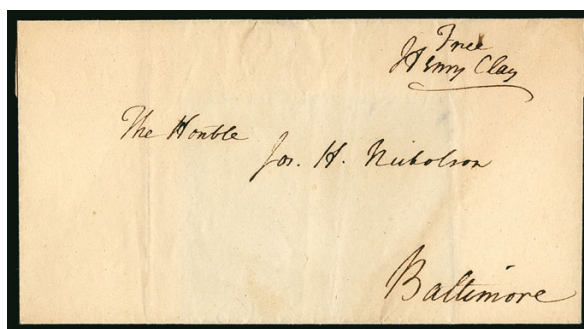 Free
Henry Clay
The Honble
Jos. H. Nicholson
Baltimore